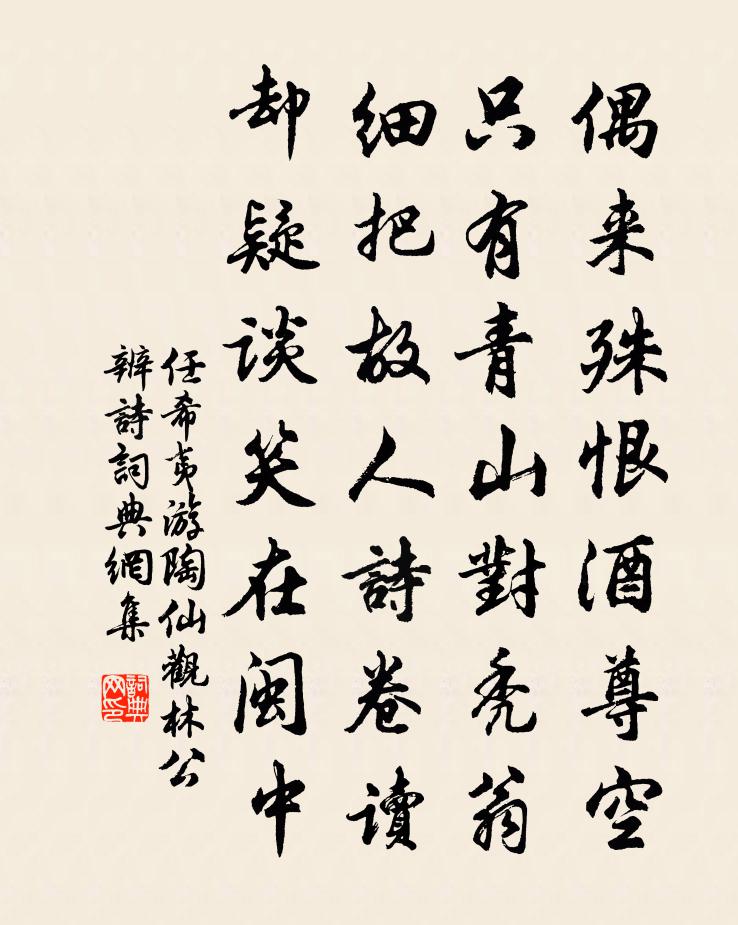 偶来殊恨酒尊空
只有青山對秃翁
细把故人詩卷读
却疑谈笑在闽中
任希夷游陶仙觀林公
辨詩詞典網集
詞典
网印